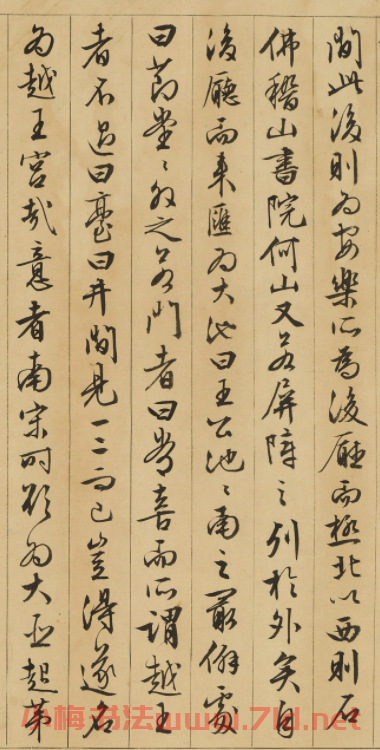 間此後則為安樂所為後廳而極北以西則石
佛稽山書院何山又若屏障之列於外矣自
後廳而東匯為大池曰王公池〻南之最僻處
曰節堂〻之若門者曰常喜而所謂越王
者不過曰臺曰井間見一二而已豈得遂名
為越王宮哉意者南宋時為大起第
小梅书法www.7ld.net